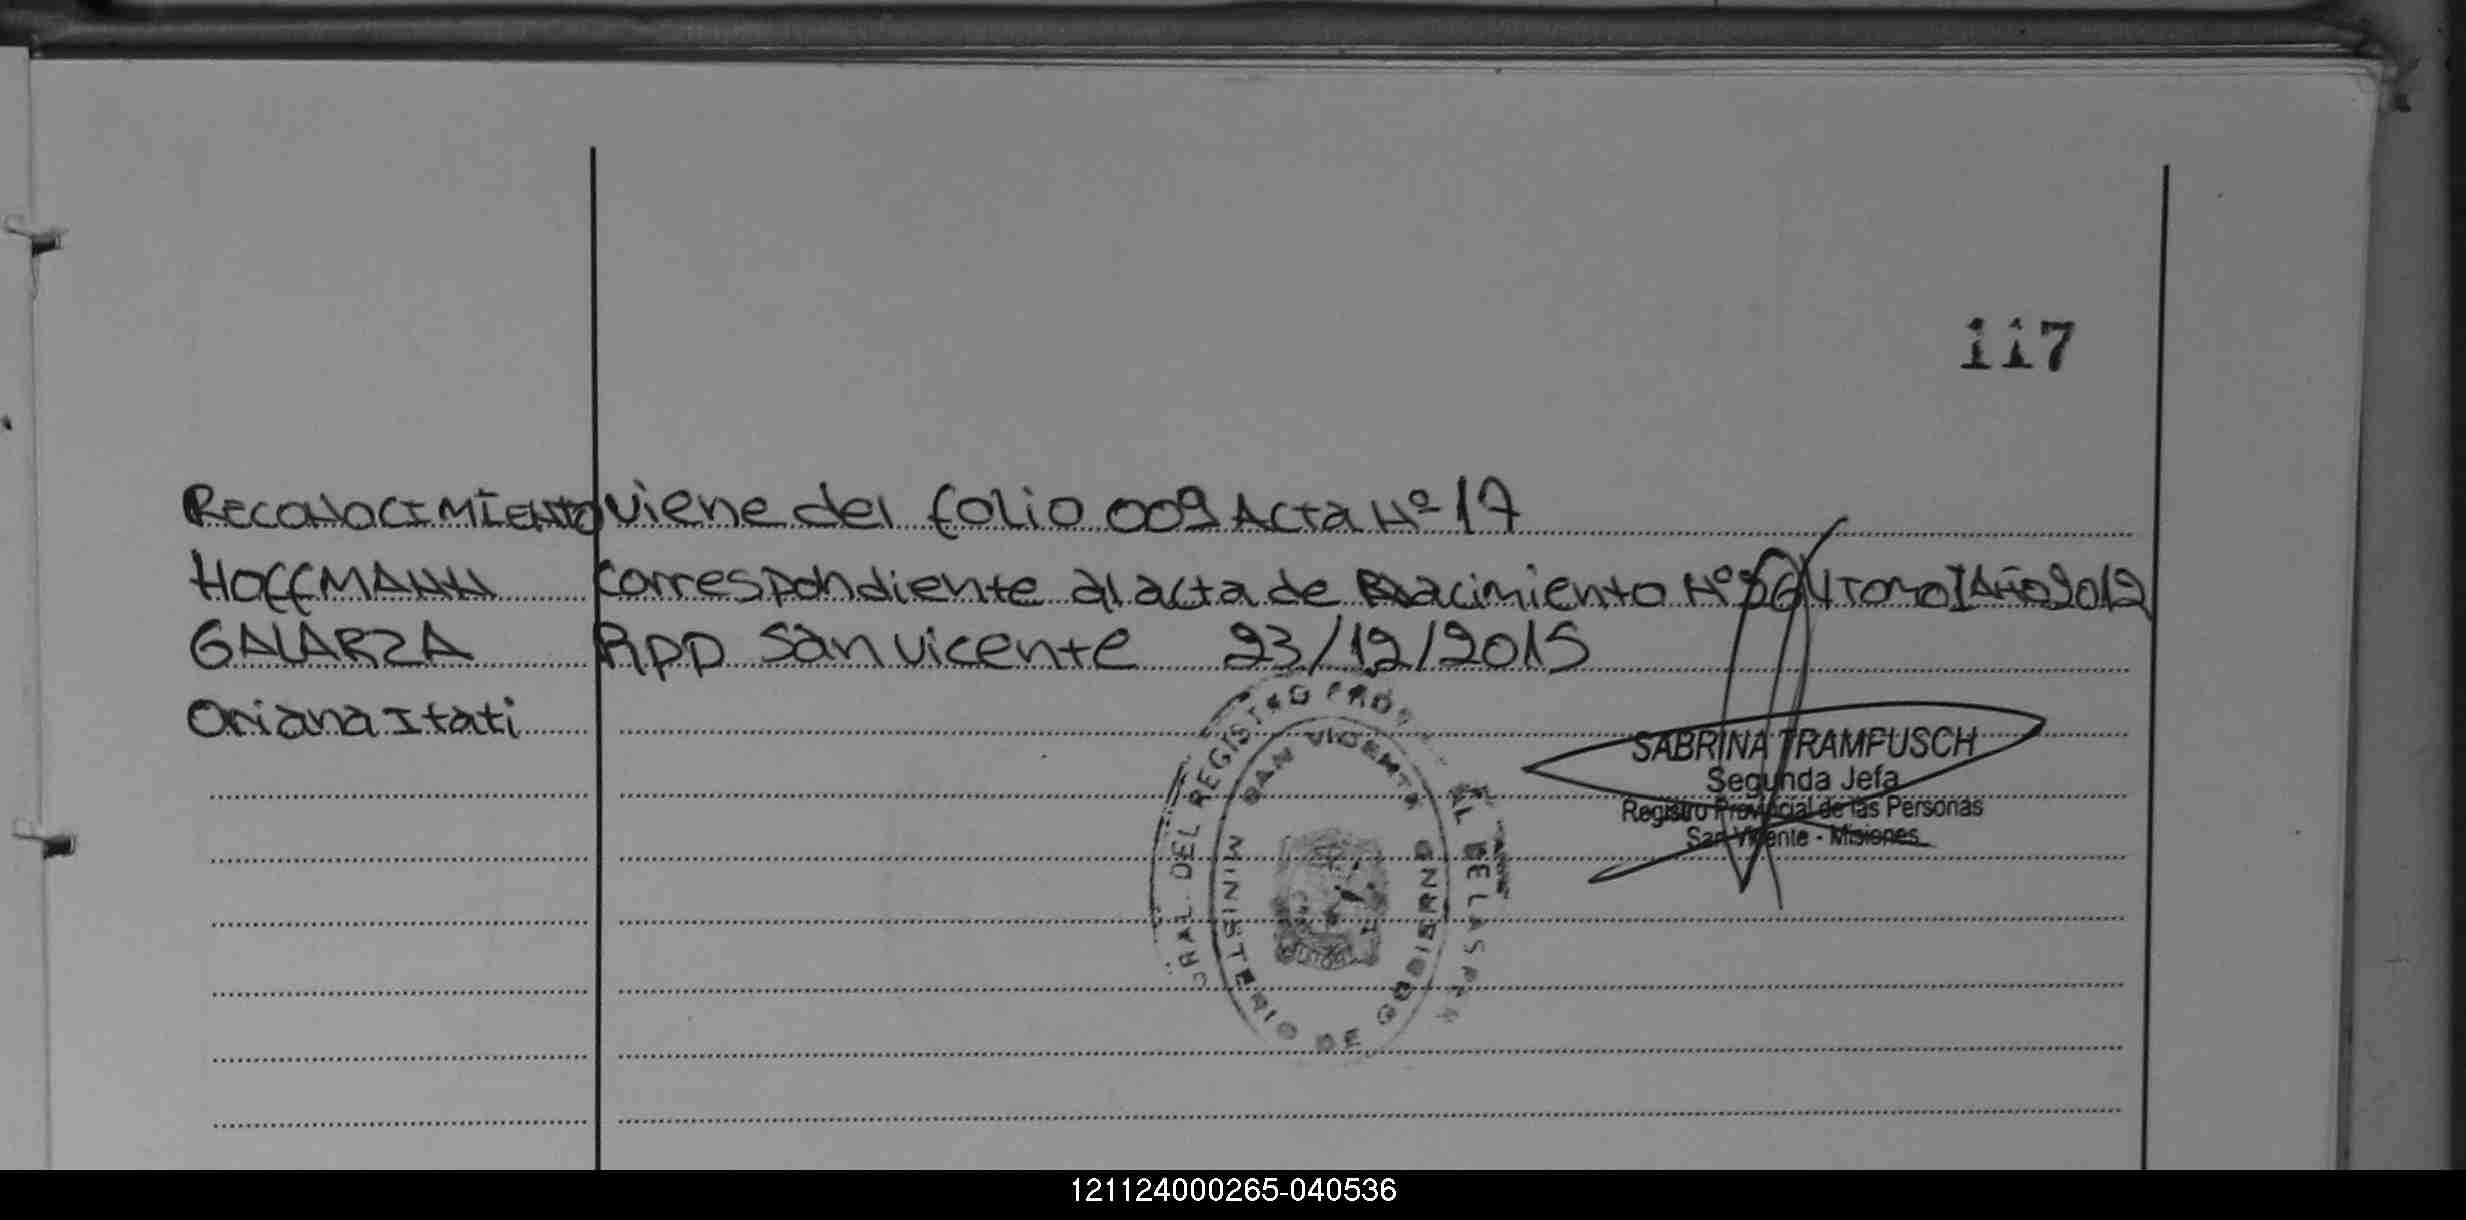 117
Reconocimiento viene del folio 009 Acta Nº 17
HOFFMANN correspondiente al acta de Nacimiento Nº Tomo I Año 2012
GALARZA Rpp San Vicente 23/12/2015
Oriana Itati
SABRINA TRAMPUSCH
Segunda Jefa
Registro Provincial de las Personas
San Vicente - Misiones
RAL. DEL REGISTRO PROV AL DE LAS PER
SAN VICENTE
MINISTERIO DE GOBIERNO
121124000265-040536